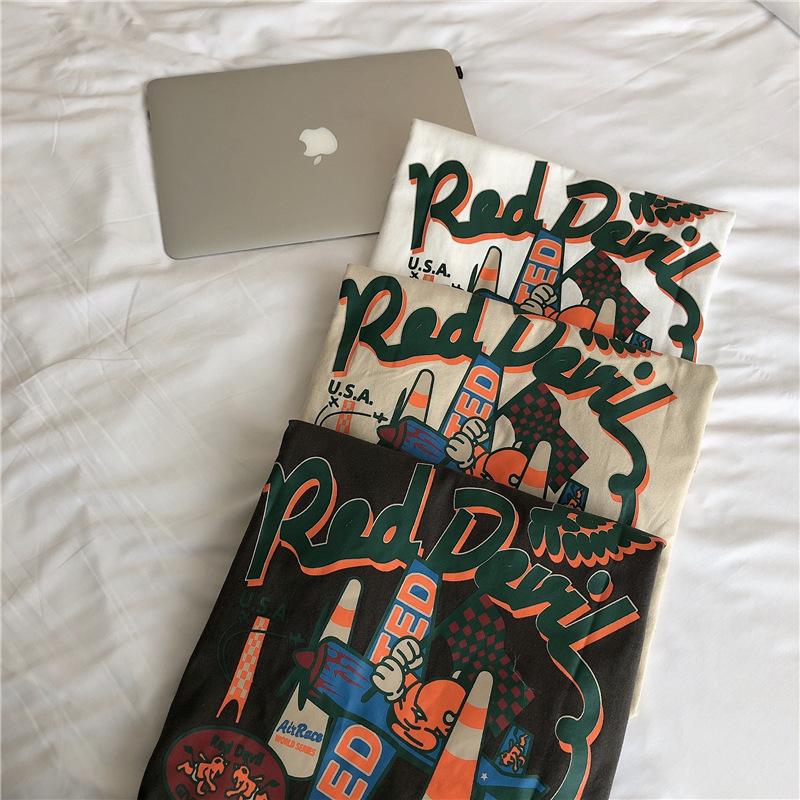 Red Devil
U.S.A.
TED
Red Devil
U.S.A.
TED
Red Devil
U.S.A.
TED
AirRace
WORLD SERIES
TED
Red Devil